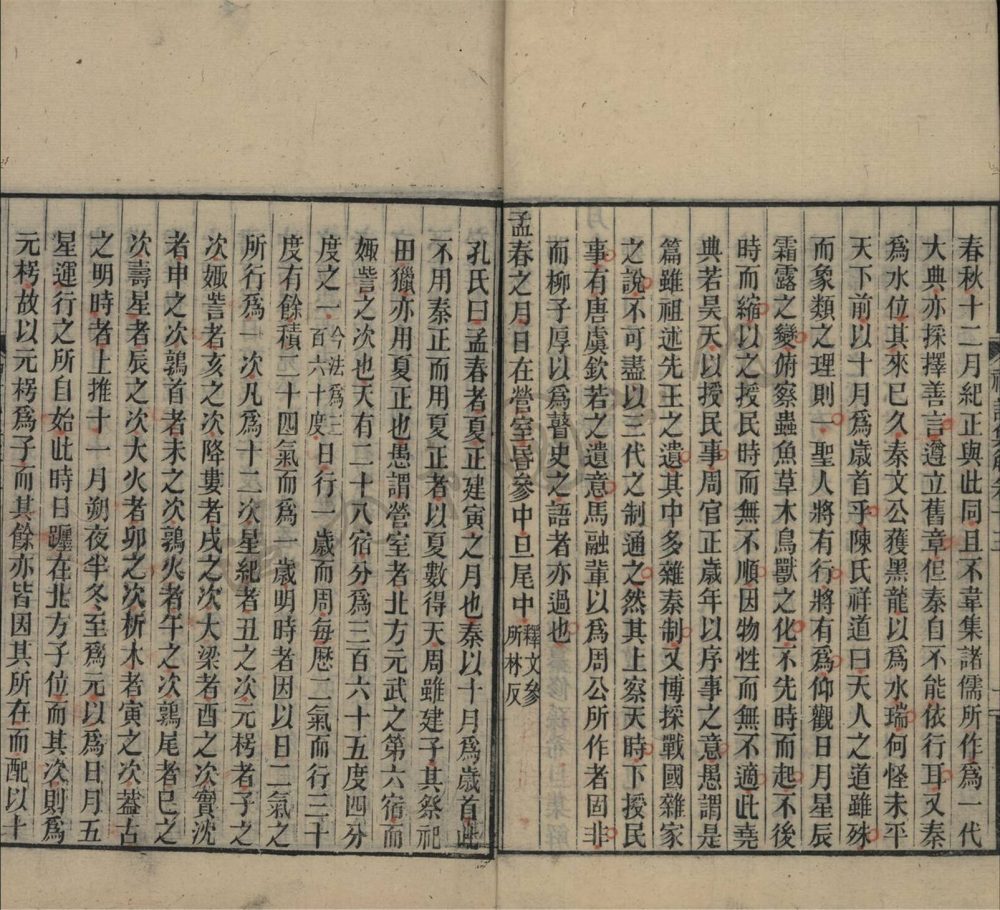 春秋十二月紀正與此同且不韋集諸儒所作爲一代
大典亦採擇善言遵立舊章但秦自不能依行耳又秦
爲水位其來已久秦文公獲黑龍以爲水瑞何怪未平
天下前以十月爲歲首乎陳氏祥道曰天人之道雖殊
而象類之理則一聖人將有行將有爲仰觀日月星辰
霜露之變俯察蟲魚草木鳥獸之化不先時而起不後
時而縮以之授民時而無不順因物性而無不適此堯
典若昊天以授民事周官正歲年以序事之意愚謂是
篇雖祖述先王之遺其中多雜秦制又博採戰國雜家
之說不可盡以三代之制通之然其上察天時下授民
事有唐虞欽若之遺意馬融輩以爲周公所作者固非
而柳子厚以爲瞽史之語者亦過也
孟春之月日在營室昏參中旦尾中釋文參所林反
孔氏曰孟春者夏正建寅之月也秦以十月爲歲首此
不用秦正而用夏正者以夏數得天周雖建子其祭祀
田獵亦用夏正也愚謂營室者北方元武之第六宿而
娵訾之次也天有二十八宿分爲三百六十五度四分
度之一今法爲三百六十度日行一歲而周每歷二氣而行三十
度有餘積二十四氣而爲一歲明時者因以日二氣之
所行爲一次凡爲十二次星紀者丑之次元枵者子之
次娵訾者亥之次降婁者戌之次大梁者酉之次實沈
者申之次鶉首者未之次鶉火者午之次鶉尾者巳之
次壽星者辰之次大火者卯之次析木者寅之次蓋古
之明時者上推十一月朔夜半冬至爲元以爲日月五
星運行之所自始此時日躔在北方子位而其次則爲
元枵故以元枵爲子而其餘亦皆因其所在而配以十